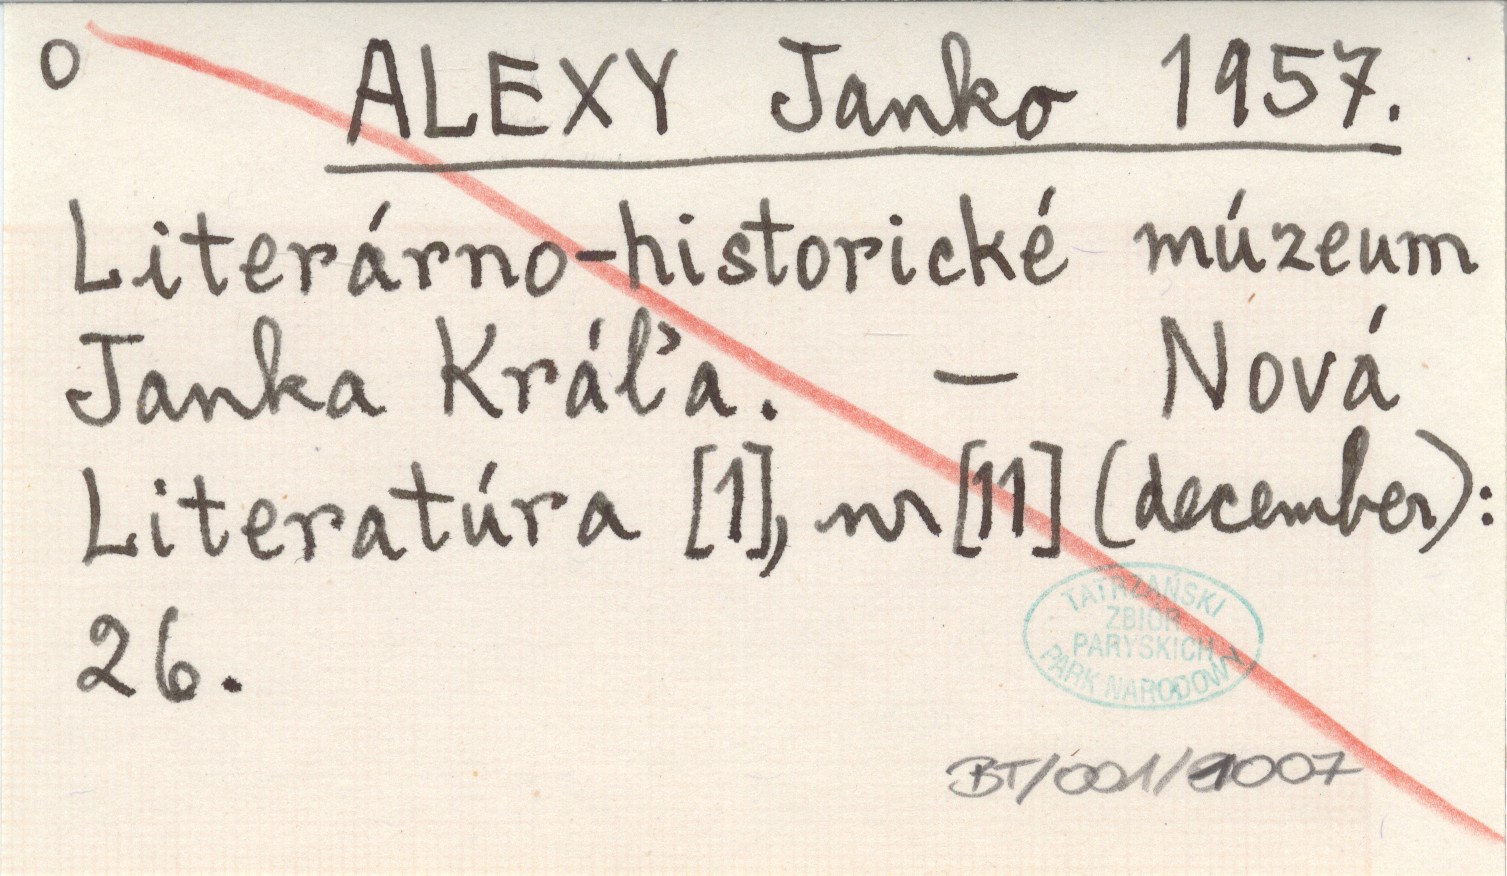 O ALEXY Janko 1957.
Literárno-historické múzeum
Janka Kráľa. — Nová
Literatúra [1], nr [11] (december):
26.
TATRZAŃSKI
ZBIÓR
PARYSKICH
PARK NARODOWY
BT/001/1007